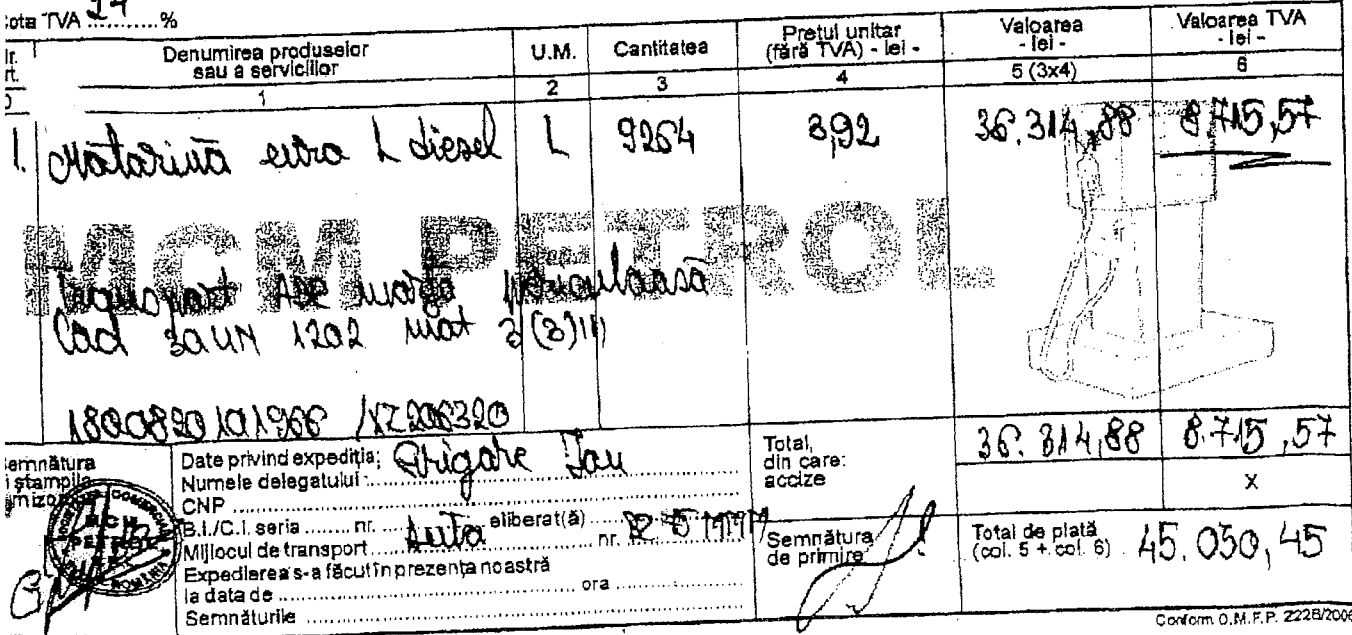 Cota TVA ........... %
Nr. crt. Denumirea produselor sau a serviciilor U.M. Cantitatea Preţul unitar (fără TVA) - lei - Valoarea - lei - Valoarea TVA - lei -
0 1 2 3 4 5 (3x4) 6
1. Motorină extra L diesel L 9264 3,92 36.314,88 8.715,57
MGM PETROL
Transport ADR marfă periculoasă
Cod 30 UN 1202 mat 3(3)III
1800820101966 /XZ 206320
Semnătura şi ştampila furnizorului
Date privind expediţia:
Numele delegatului: Grigore
CNP
B.I./C.I. seria ........ nr. ........ eliberat(ă) ........
Mijlocul de transport Auto nr.
Expedierea s-a făcut în prezenţa noastră
la data de ........ ora ........
Semnăturile ........
Total, din care: accize 36.314,88 8.715,57
X
Semnătura de primire
Total de plată (col. 5 + col. 6) 45.030,45
Conform O.M.F.P. 2226/2006